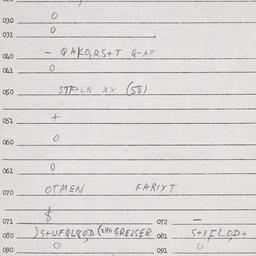 030 0
031 0
040 - Q AKO,RS+T Q-AP
041 0
050 STFALN XX (58)
051 +
060 0
061 0
070 OTMEN FARIXT
071 $ 072 -
080 )S+UFQLQOD (2ND GREISER 081 S+IFLOD+
090 0 091 0